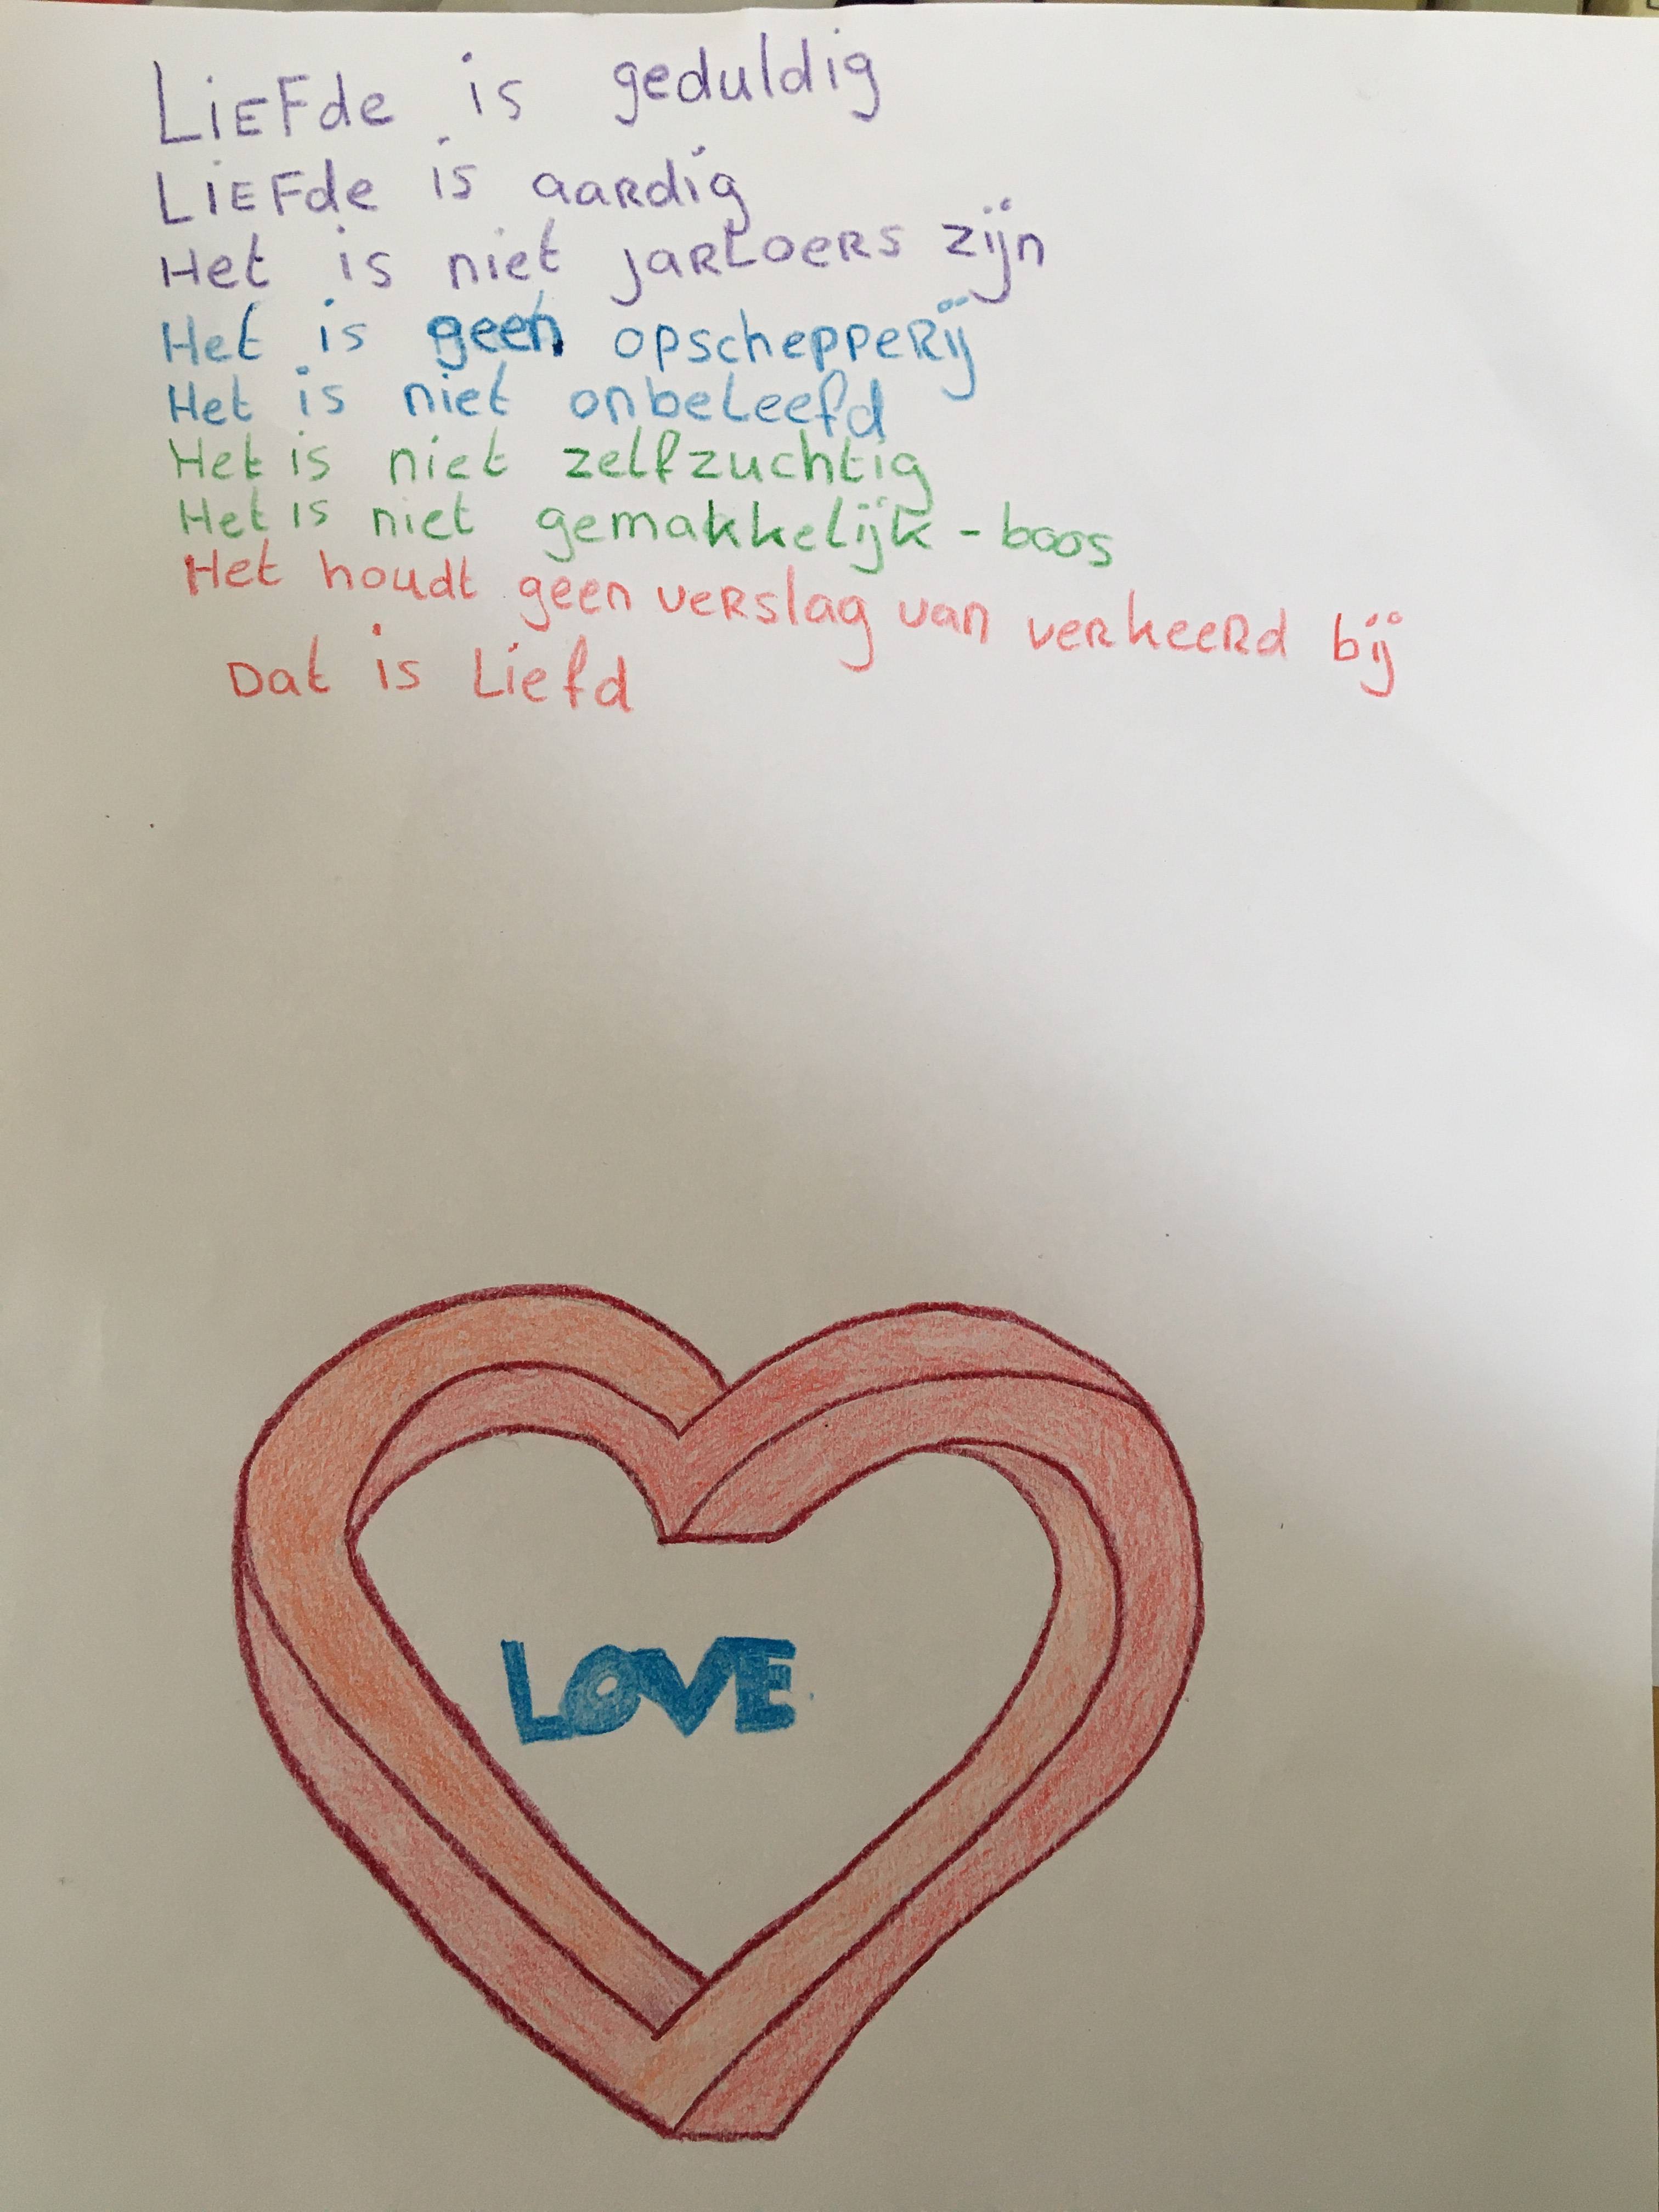 LiEFde is geduldig
LiEFde is aaRdig
Het is niet jaRLoeRs zijn
Het is geen opscheppeRij
Het is niet onbeLeefd
Het is niet zelfzuchtig
Het is niet gemakkelijk - boos
Het houdt geen veRslag van veRkeeRd bij
Dat is Liefd
LOVE